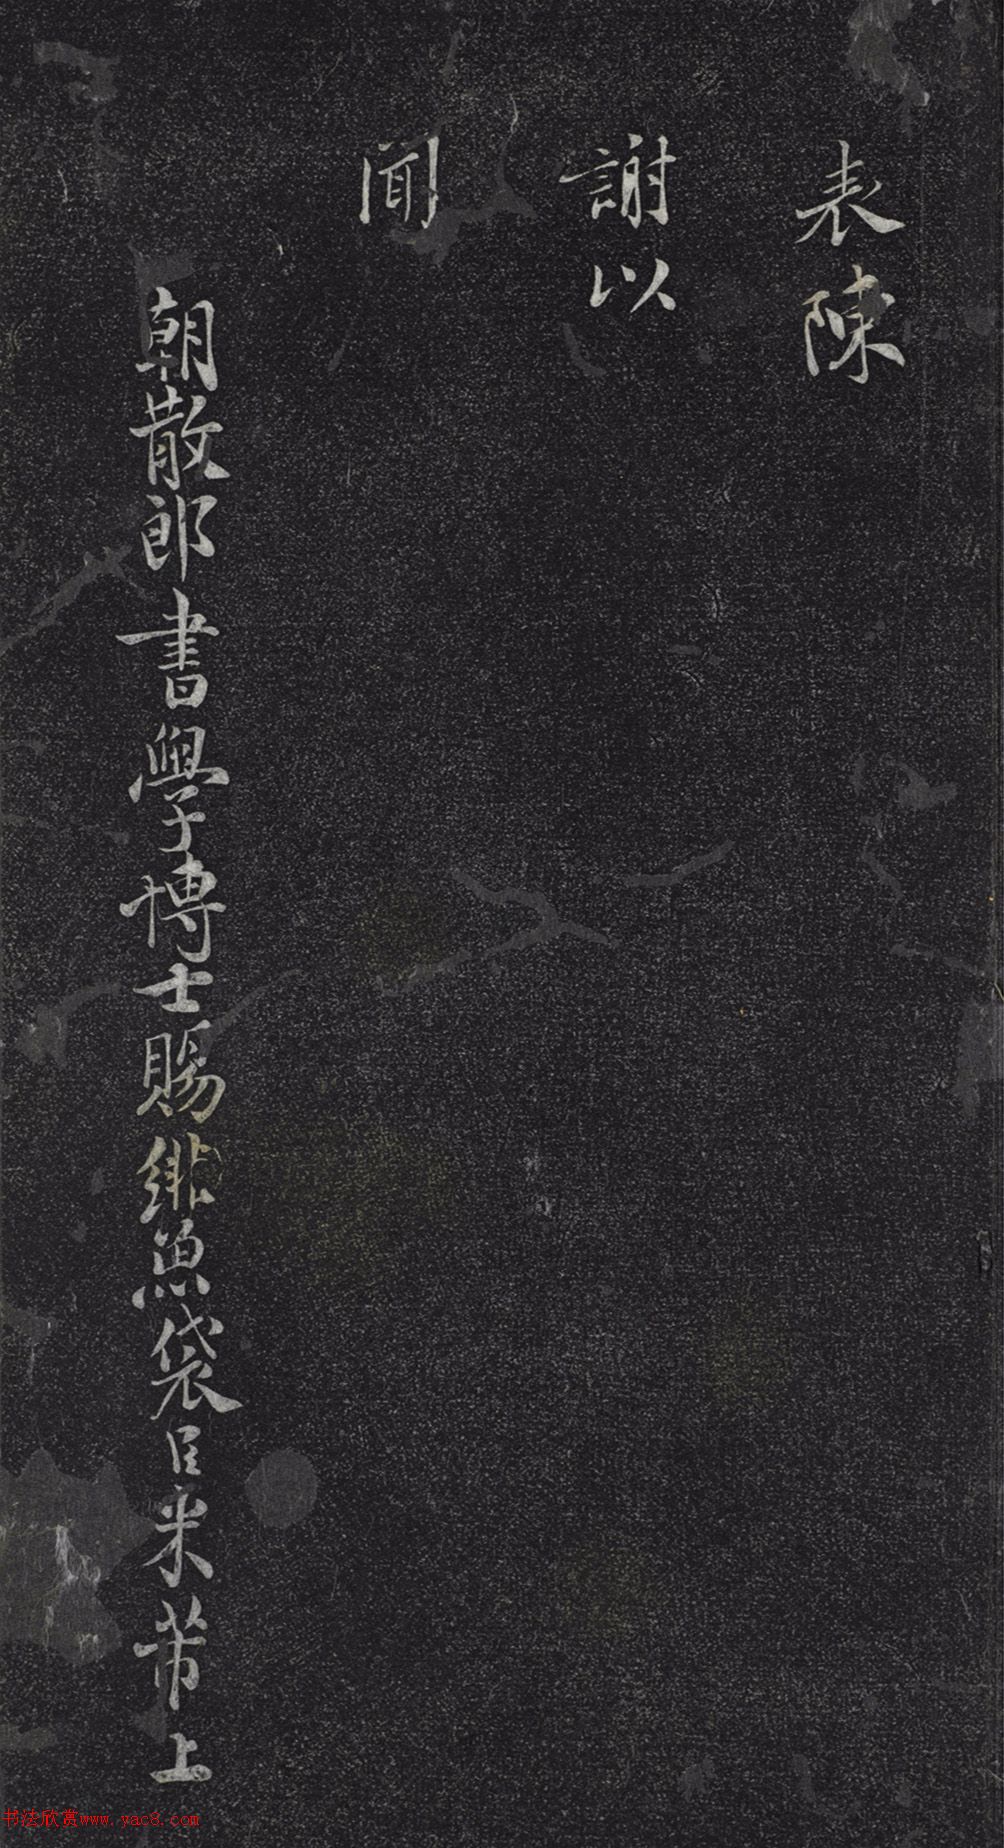 表陳
謝以
聞
朝散郎書學博士賜緋魚袋臣米芾上
书法欣赏www.yac8.com